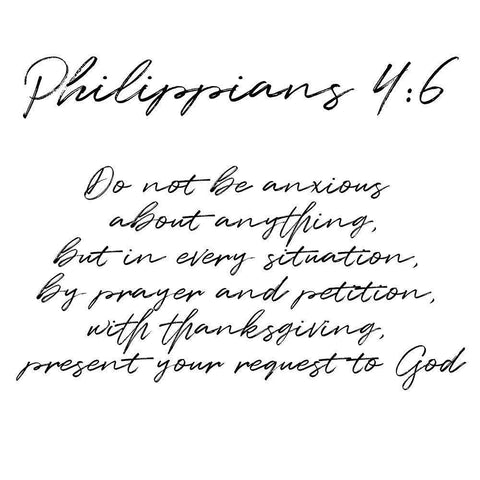 Philippians 4:6
Do not be anxious
about anything,
but in every situation,
by prayer and petition,
with thanksgiving,
present your request to God